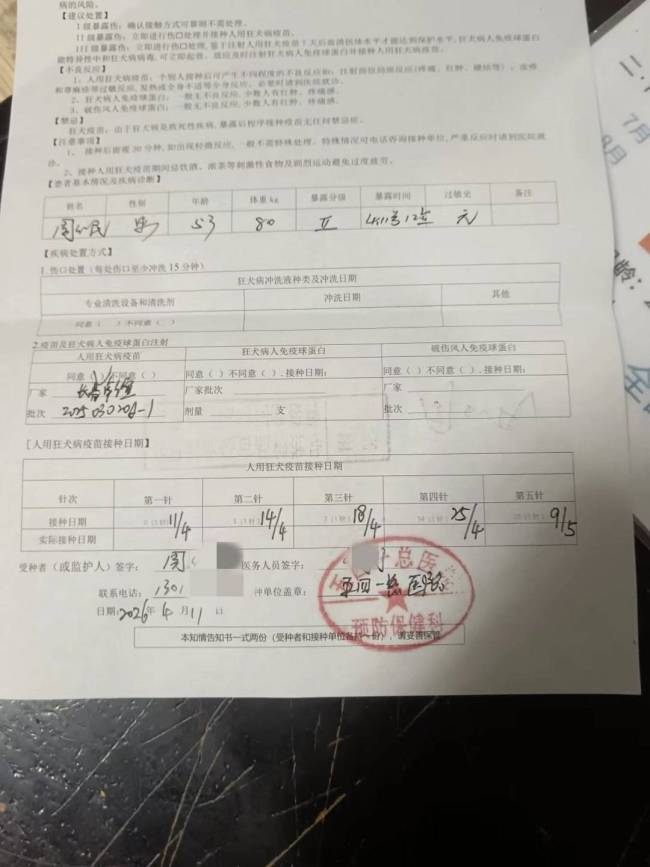 病的风险。
【建议处置】
I级暴露伤：确认接触方式可靠则不需处理。
II级暴露伤：立即进行伤口处理并接种人用狂犬病疫苗。
III级暴露伤：立即进行伤口处理，鉴于注射人用狂犬疫苗7天后抗体水平才能达到保护水平，狂犬病人免疫球蛋白
能特异性中和狂犬病病毒，可立即起效，应及时注射狂犬病人免疫球蛋白并接种人用狂犬病疫苗。
【不良反应】
1、人用狂犬病疫苗：个别人接种后可产生不同程度的不良反应如：注射部位局部反应(疼痛、红肿、硬结等)，皮疹
和荨麻疹等过敏反应，发热或全身不适等全身反应，必要时请到医院就诊。
2、狂犬病人免疫球蛋白：一般无不良反应，少数人有红肿、疼痛感。
3、破伤风人免疫球蛋白：一般无不良反应，少数人有红肿、疼痛感。
【禁忌】
狂犬疫苗：由于狂犬病是致死性疾病，暴露后程序接种疫苗无任何禁忌症。
【注意事项】
1、接种后留观30分钟，如出现轻微反应，一般不需特殊处理。特殊情况可电话咨询接种单位，严重反应时请到医院就
诊。
2、接种人用狂犬疫苗期间忌饮酒、浓茶等刺激性食物及剧烈运动避免过度疲劳。
【患者基本情况及疾病诊断】
姓名 性别 年龄 体重kg 暴露分级 暴露时间 过敏史 备注
民 男 53 80 II 4.11号12点 无
【疾病处置方式】
1.伤口处置（每处伤口至少冲洗15分钟）
狂犬病冲洗液种类及冲洗日期
专业清洗设备和清洗剂 冲洗日期 其他
同意（ ）不同意（ ）
2.疫苗及狂犬病人免疫球蛋白注射
人用狂犬病疫苗 狂犬病人免疫球蛋白 破伤风人免疫球蛋白
同意（√）不同意（ ） 同意（ ）不同意（ ）.接种日期： 同意（ ）不同意（ ）.接种日期：
厂家 长春卓谊 厂家批次 厂家
批次 202503020б-1 剂量 支 批次
[人用狂犬病疫苗接种日期】
人用狂犬疫苗接种日期
针次 第一针 第二针 第三针 第四针 第五针
接种日期 11/4 14/4 18/4 25/4 9/5
实际接种日期
受种者（或监护人）签字： 周 医务人员签字：
联系电话： 1301 冲单位盖章：
总医
预防保健科
日期：2026年4月11日
本知情告知书一式两份（受种者和接种单位各持一份），请妥善保管
二.
7月
8月
龄：